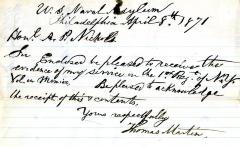 U. S. Naval Asylum
Philadelphia April 8th 1871
Honl. A. P. Nichols
Sir Enclosed be pleased to receive the
evidence of my service in the 1st Reg. of N.Y.
Vol. in Mexico. Be pleased to acknowledge
the receipt of this & contents.
Yours respectfully
Thomas Martin